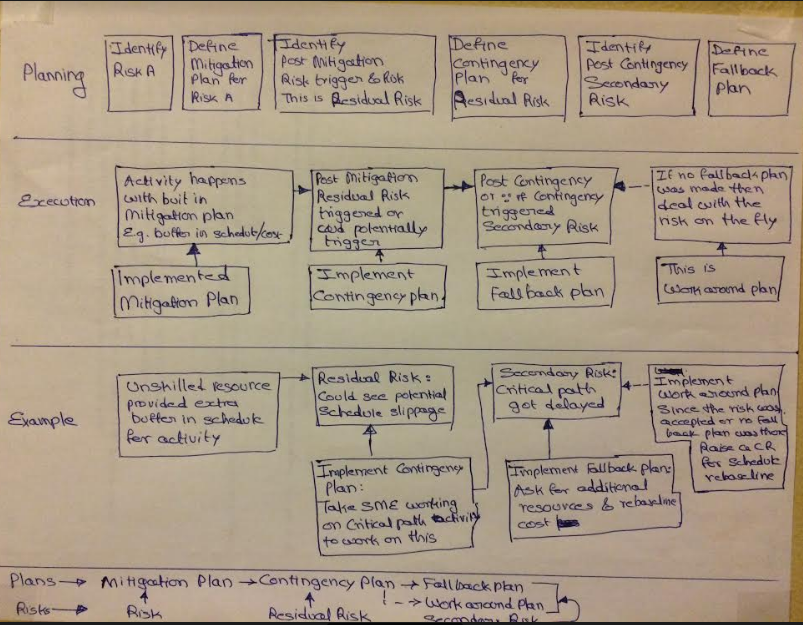 Planning
Identify
Risk A
Define
Mitigation
Plan for
Risk A
Identify
Post Mitigation
Risk trigger & Risk
This is Residual Risk
Define
Contingency
Plan for
Residual Risk
Identify
Post Contingency
Secondary
Risk
Define
Fallback
Plan
Execution
Activity happens
with buit in
Mitigation plan
E.g. buffer in schedule/cost
Post Mitigation
Residual Risk
triggered or
could potentially
trigger
Post Contingency
or if Contingency
triggered
Secondary Risk
If no fallback plan
was made then
deal with the
risk on the fly
Implemented
Mitigation Plan
Implement
Contingency plan
Implement
Fallback plan
This is
Workaround plan
Example
Unskilled resource
provided extra
buffer in schedule
for activity
Residual Risk:
Could see potential
Schedule slippage
Secondary Risk:
Critical path
got delayed
Implement
Work around plan
Since the risk was
accepted or no fall
back plan was there
Raise a CR
for schedule
rebaseline
Implement Contingency
Plan:
Take SME working
on Critical path activity
to work on this
Implement Fallback plan:
Ask for additional
resources & rebaseline
cost
Plans → Mitigation Plan → Contingency Plan → Fallback plan
--> Work around Plan
Risks → Risk Residual Risk Secondary Risk